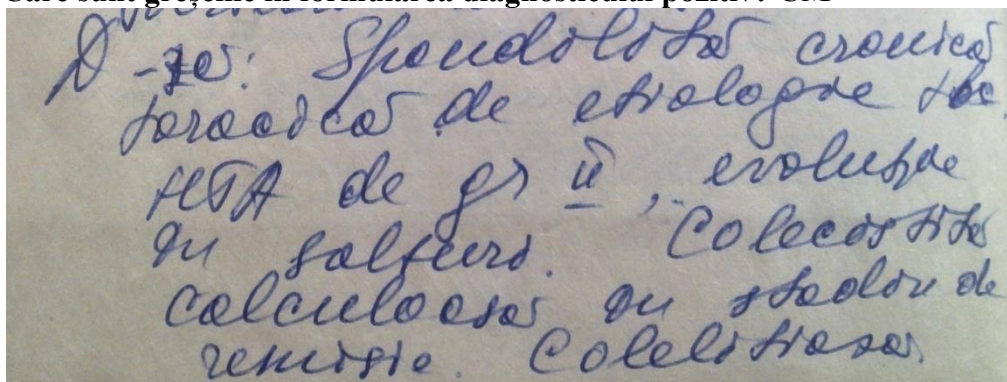 Care sunt greșelile în formularea diagnosticului pozitiv? CM
D-za: Spondilită cronică
toracică de etiologie tbc
HTA de gr II, evoluție
în salturi. Colecistită
calculoasă în stadiu de
remisie. Colelitiaza.